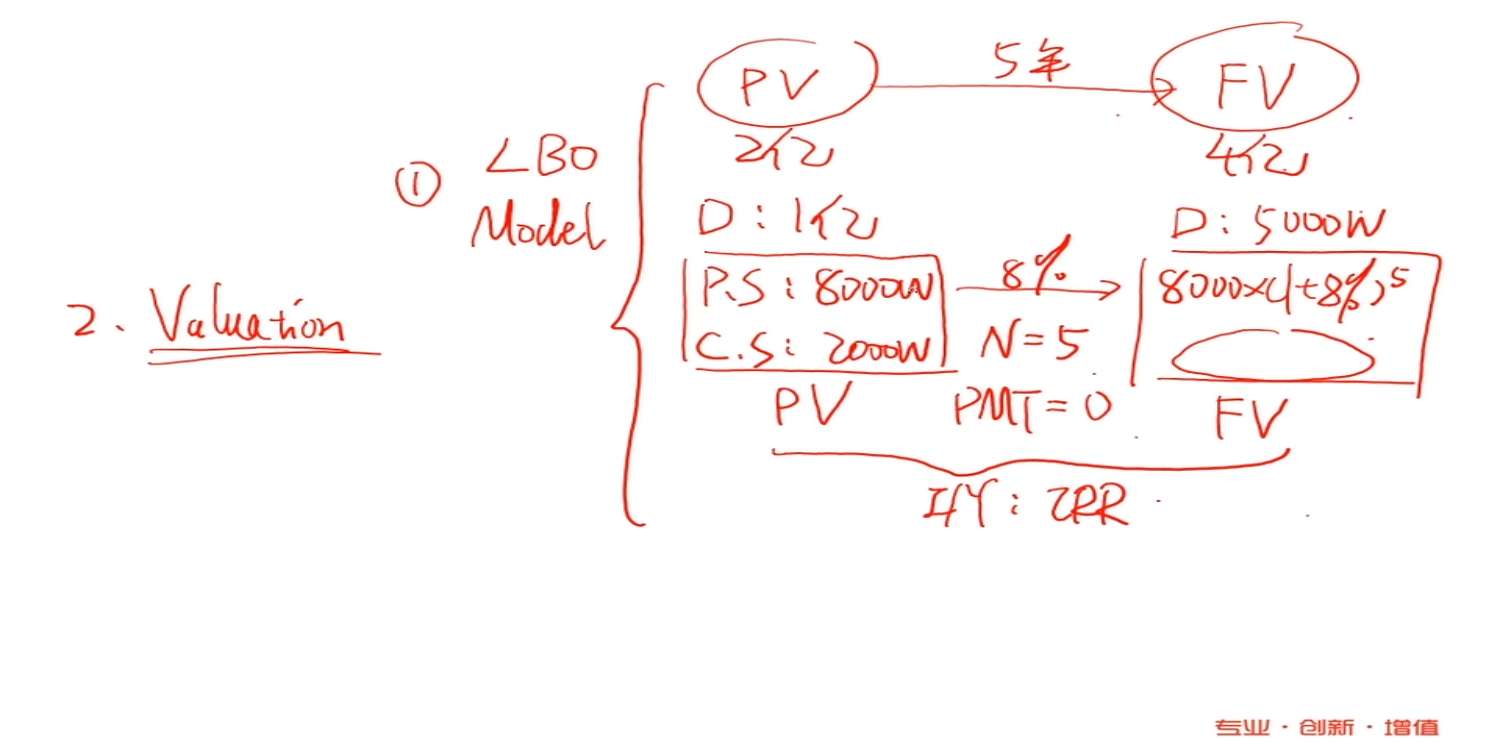 2. Valuation
① LBO
Model
PV 5年 FV
2亿 4亿
D: 1亿 D: 5000W
P.S: 8000W 8% 8000×(1+8%)^5
C.S: 2000W N=5
PV PMT=0 FV
I/Y: IRR
专业·创新·增值